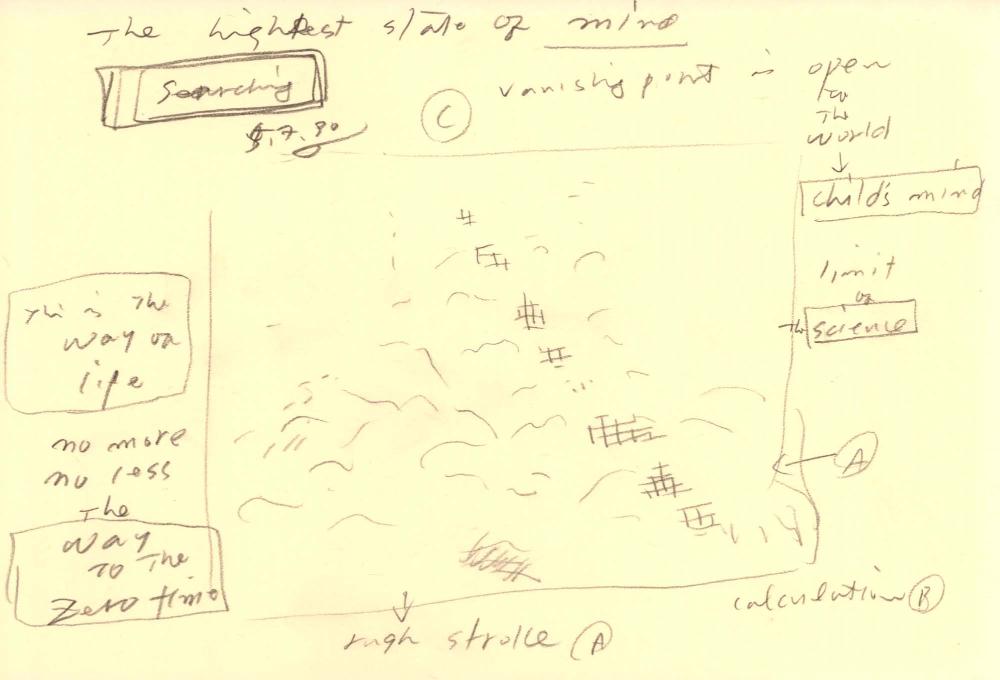 The highest state of mind
Searching
$.7.90
C
vanishing point is open
to
The
world
child's mind
limit
of
The science
This is The
way of
life
no more
no less
The
way
To The
Zero time
A
calculation B
rough stroke A